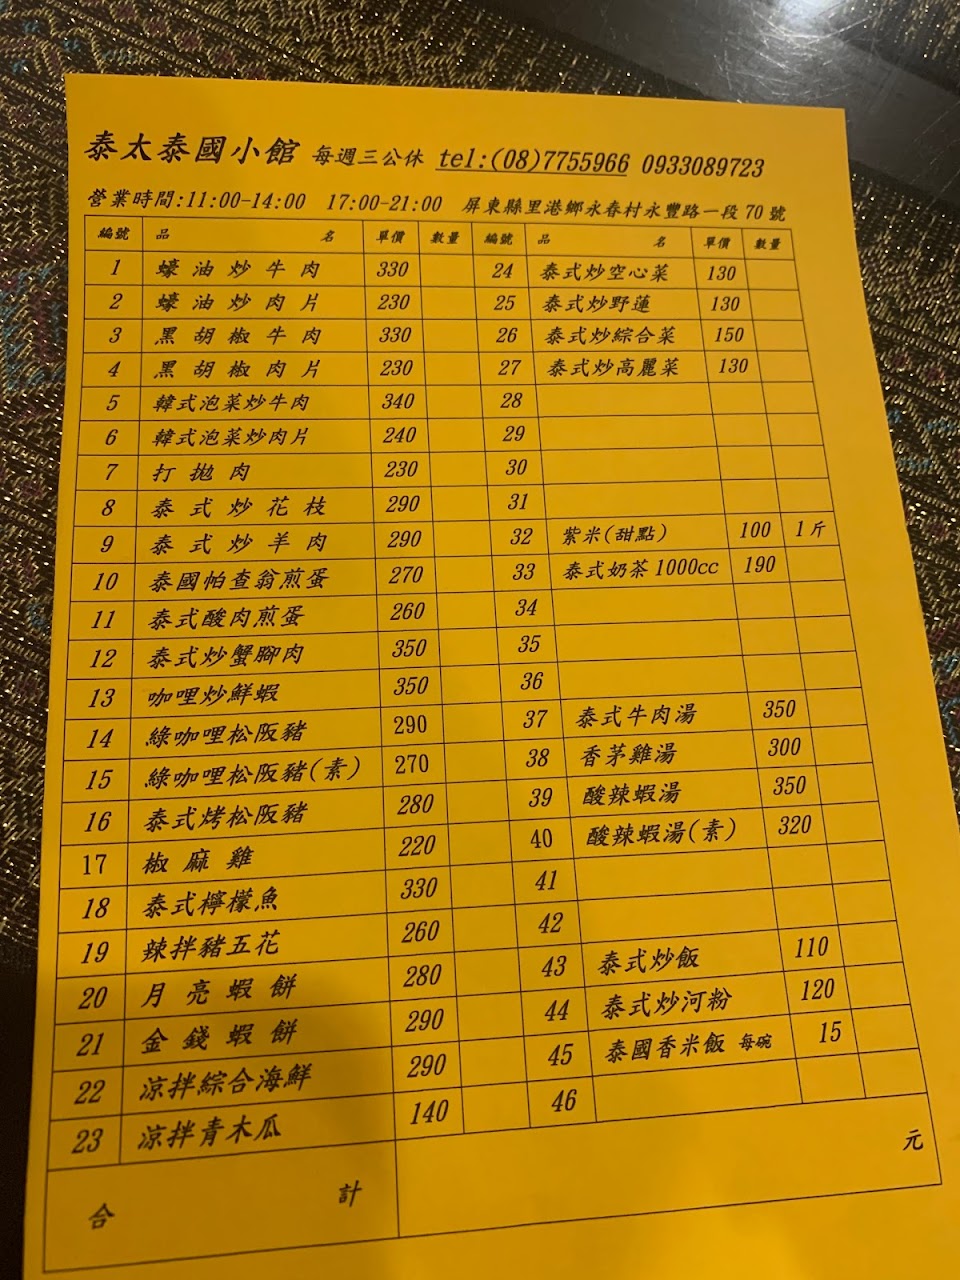 泰太泰國小館 每週三公休 tel:(08)7755966 0933089723
營業時間:11:00-14:00 17:00-21:00 屏東縣里港鄉永春村永豐路一段70號
編號 品名 單價 數量 編號 品名 單價 數量
1 蠔油炒牛肉 330 24 泰式炒空心菜 130
2 蠔油炒肉片 230 25 泰式炒野蓮 130
3 黑胡椒牛肉 330 26 泰式炒綜合菜 150
4 黑胡椒肉片 230 27 泰式炒高麗菜 130
5 韓式泡菜炒牛肉 340 28
6 韓式泡菜炒肉片 240 29
7 打拋肉 230 30
8 泰式炒花枝 290 31
9 泰式炒羊肉 290 32 紫米(甜點) 100 1斤
10 泰國帕查翁煎蛋 270 33 泰式奶茶1000cc 190
11 泰式酸肉煎蛋 260 34
12 泰式炒蟹腳肉 350 35
13 咖哩炒鮮蝦 350 36
14 綠咖哩松阪豬 290 37 泰式牛肉湯 350
15 綠咖哩松阪豬(素) 270 38 香茅雞湯 300
16 泰式烤松阪豬 280 39 酸辣蝦湯 350
17 椒麻雞 220 40 酸辣蝦湯(素) 320
18 泰式檸檬魚 330 41
19 辣拌豬五花 260 42
20 月亮蝦餅 280 43 泰式炒飯 110
21 金錢蝦餅 290 44 泰式炒河粉 120
22 涼拌綜合海鮮 290 45 泰國香米飯 每碗 15
23 涼拌青木瓜 140 46
合計 元